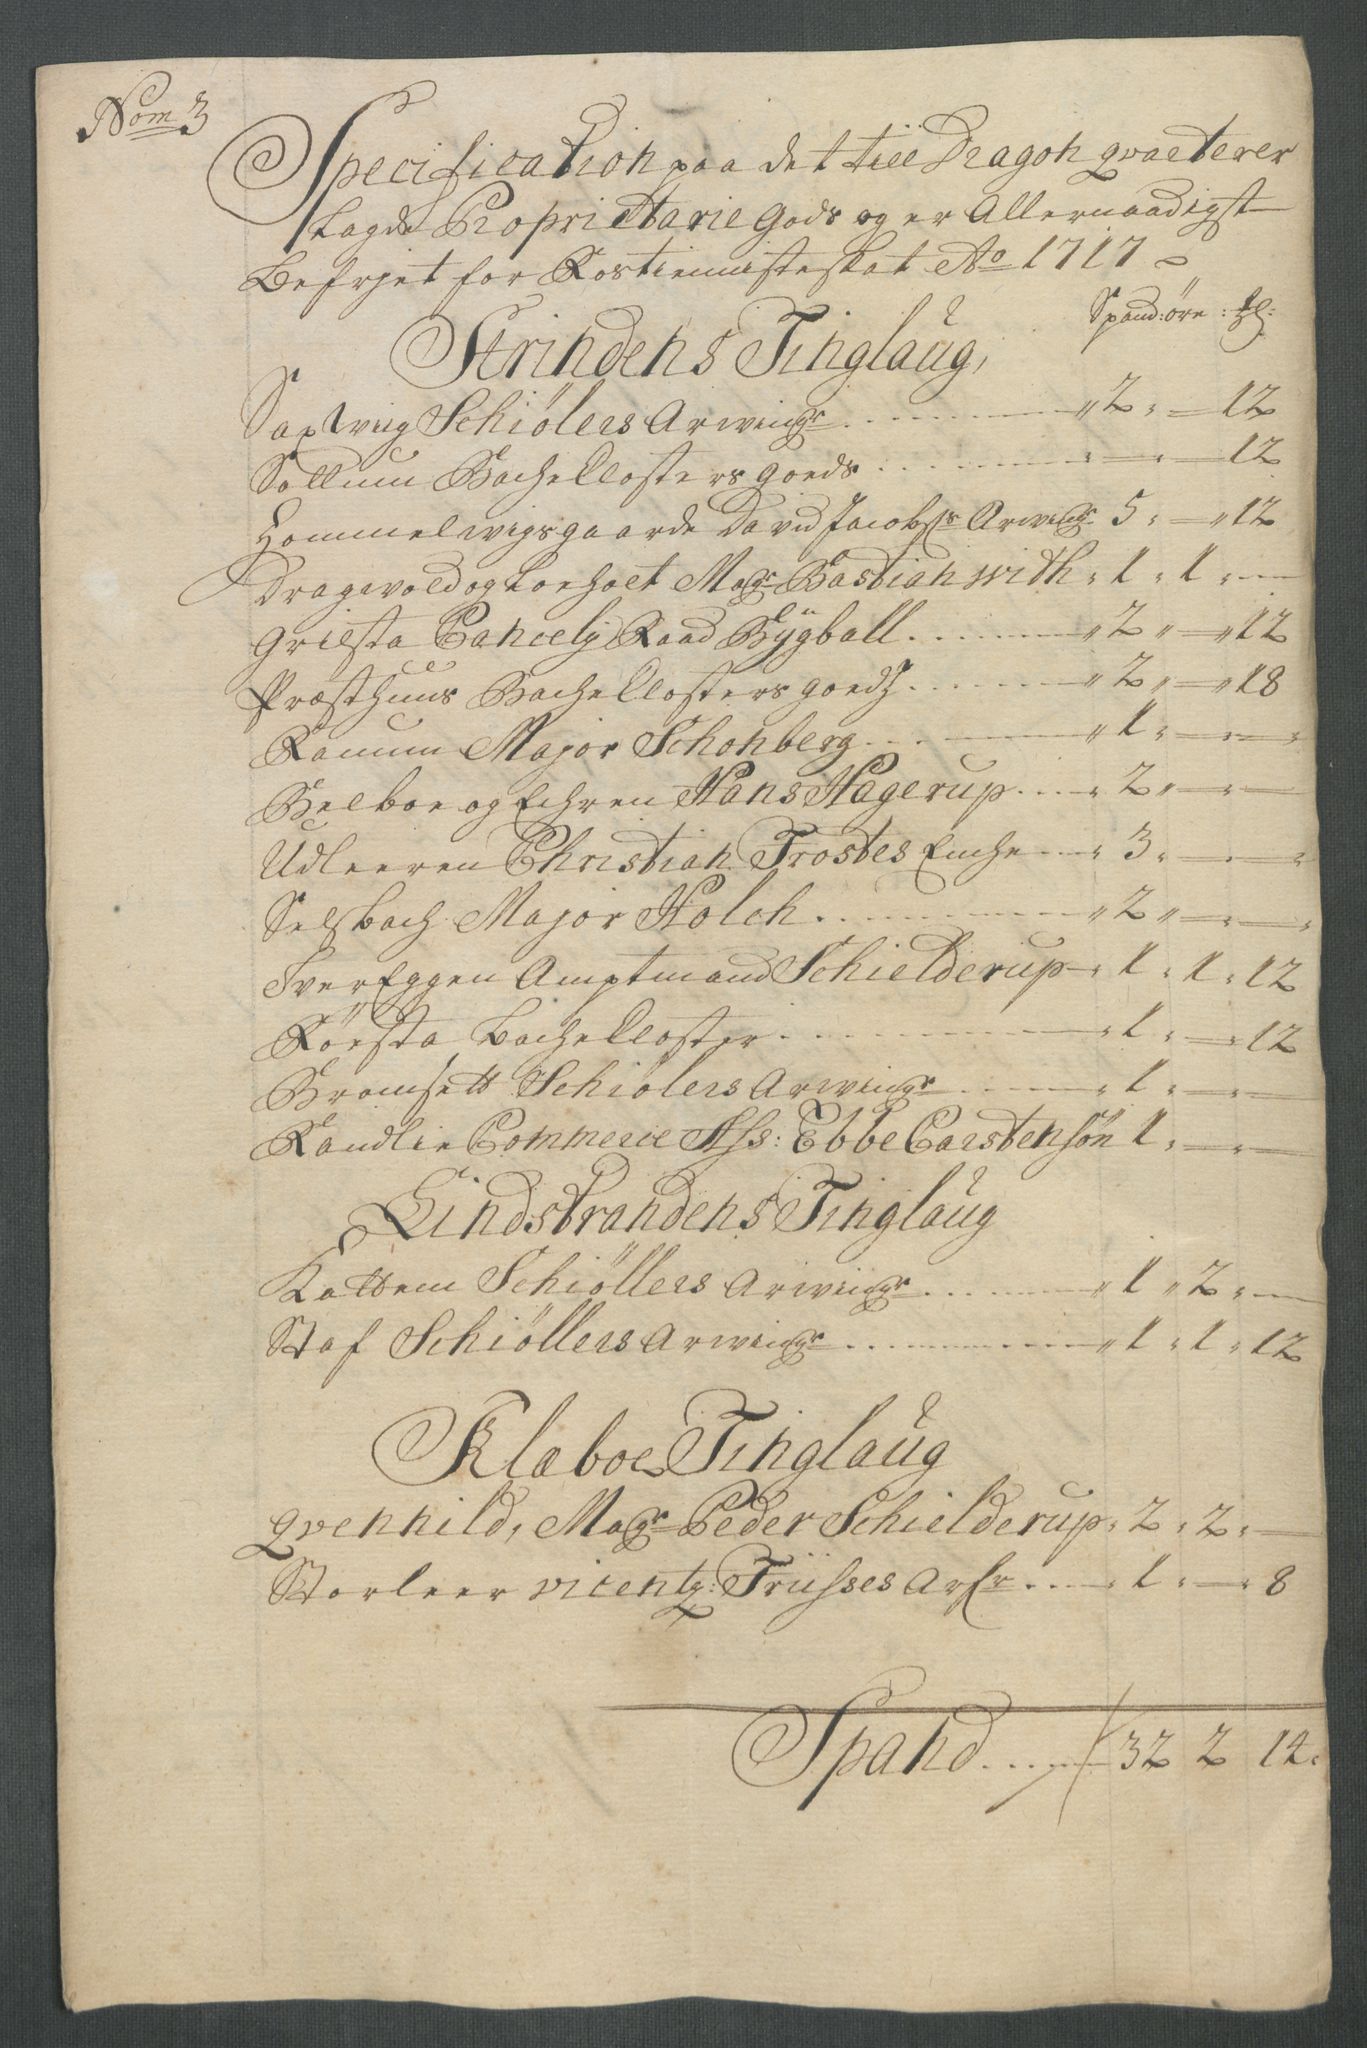 Nom 3
Specification paa det till Dragon qvarterer
Lagde Proprietarie Gods og er Allernaadigst
Befrjet for Rostienisteskat Ao 1717
Spand: öre : ßl:
Strindens Tinglaug,
Saxlviig Schiölers Arvingr ..... 2 - — 12
Sollum Bache Closters goeds ..... — - — 12
Hommelwigs gaarde David Jacobsens Arvingr 5 - — 12
Dragwold og Loeholt Magr Bastian with - 1 - 1 - —
Grilsta Cancely Raad Bÿgball ..... 2 - — 12
Præsthuus Bache Closters goeds ..... 2 - — 18
Ranum Major Schonberg ..... 1 - — - —
Belboe og Echren Hans Hagerup .... 2 - — - —
Udleeren Christian Trostes Enche — 3 - — - —
Selsbach Major Holch ..... 2 - — - —
Tver Eggen Amptmand Schielderup - 1 - 1 - 12
Röesta Bache Closter ..... 1 - — 12
Bromsett Schiölers Arvingr ..... 1 - — - —
Randlie Commercie Ass: Ebbe Carstensön 1 - — - —
Lindstrandens Tinglaug
Kattem Schiöllers Arvingr ..... 1 - 2 - —
Staf Schiöllers Arvingr ..... 1 - 1 - 12
Klæboe Tinglaug
qvenhild, Magr Peder Schielderup - 2 - 2 - —
Storleer vicentz: Trüsses Arfr .... 1 - — 8
Spand ..... 32 2 14.